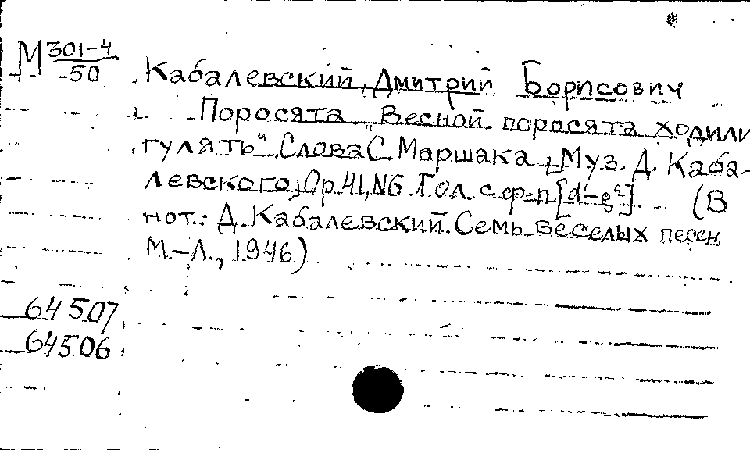 М 301-4
50
Кабалевский, Дмитрий Борисович
Поросята „Весной поросята ходили
гулять" Слова С. Маршака, Муз. Д. Каба-
левского, Ор. 41, N6. Гол. с ф-п [d¹-g²]. (В
нот.: Д. Кабалевский. Семь веселых песен
М.-Л., 1946)
64507
64506